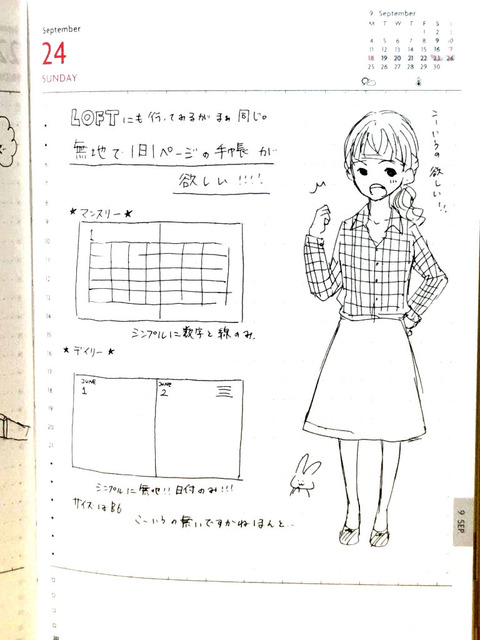 September
24
SUNDAY
9 September
M T W T F S S
1 2 3
4 5 6 7 8 9 10
11 12 13 14 15 16 17
18 19 20 21 22 23 24
25 26 27 28 29 30
LOFTにも行ってみるがまぁ同じ。
無地で1日1ページの手帳が
欲しい!!!!
こーいうの欲しい!!
★マンスリー★
1
シンプルに数字と線のみ。
★デイリー★
JUNE
1
JUNE
2
シンプルに無地!!日付のみ!!!
サイズはB6
こーいうの無いですかねほんと…
9 SEP.